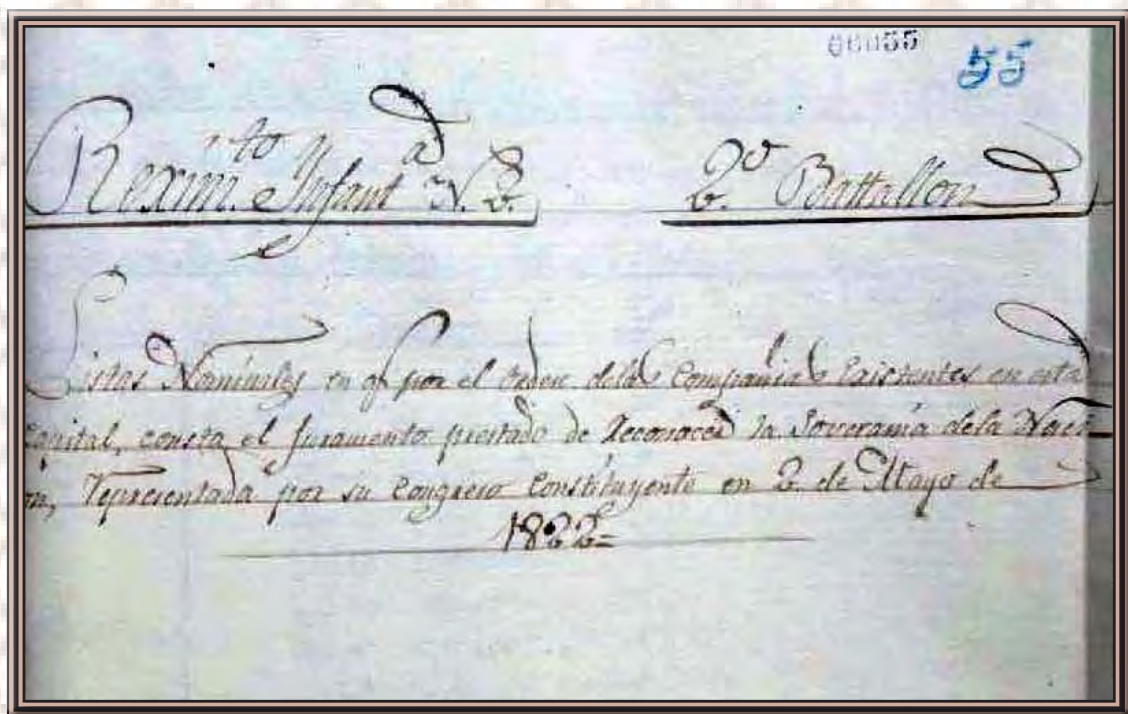 00055 55
Rexim.to Infant.a N. 2. 2.o Battallon
Listas Nominales en q.e por el orden delas Compañias Existentes en esta
Capital, consta el Juramento prestado de Reconocer la Soverania dela Naci-
on, Representada por su Congreso Constituyente en 2 de Mayo de
1822=